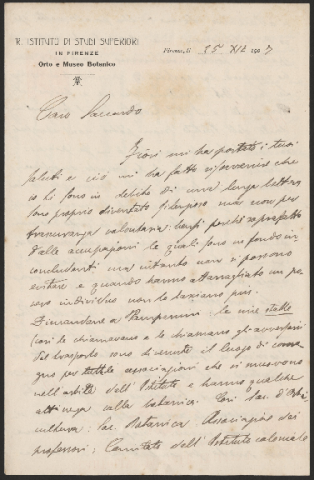 R. ISTITUTO DI STUDI SUPERIORI
IN FIRENZE
Orto e Museo Botanico
Firenze, li 15 XII 1907
Caro Saccardo
Fiori mi ha portato i tuoi
saluti e ciò mi ha fatto risovvenire che
io ti sono in debito di una lunga lettera
sono proprio diventato silenzioso ma non per
trascuranza volontaria bensì perché sopraffatto
dalle occupazioni le quali sono in fondo in
concludenti ma intanto non si possono
evitare e quando hanno attanagliato un po
vero individuo non lo lasciano più.
Dimandane a Pampanini: le mie stalle
(così le chiamavano e le chiamano gli avversari
del trasporto) sono divenute il luogo di conve
gno per tutte le associazioni che si muovono
nell'orbita dell'Istituto e hanno qualche
attinenza alla botanica. Così Soc. d'Orti
cultura; Soc. Botanica, Associazione dei
professori; Comitato dell'Istituto coloniale